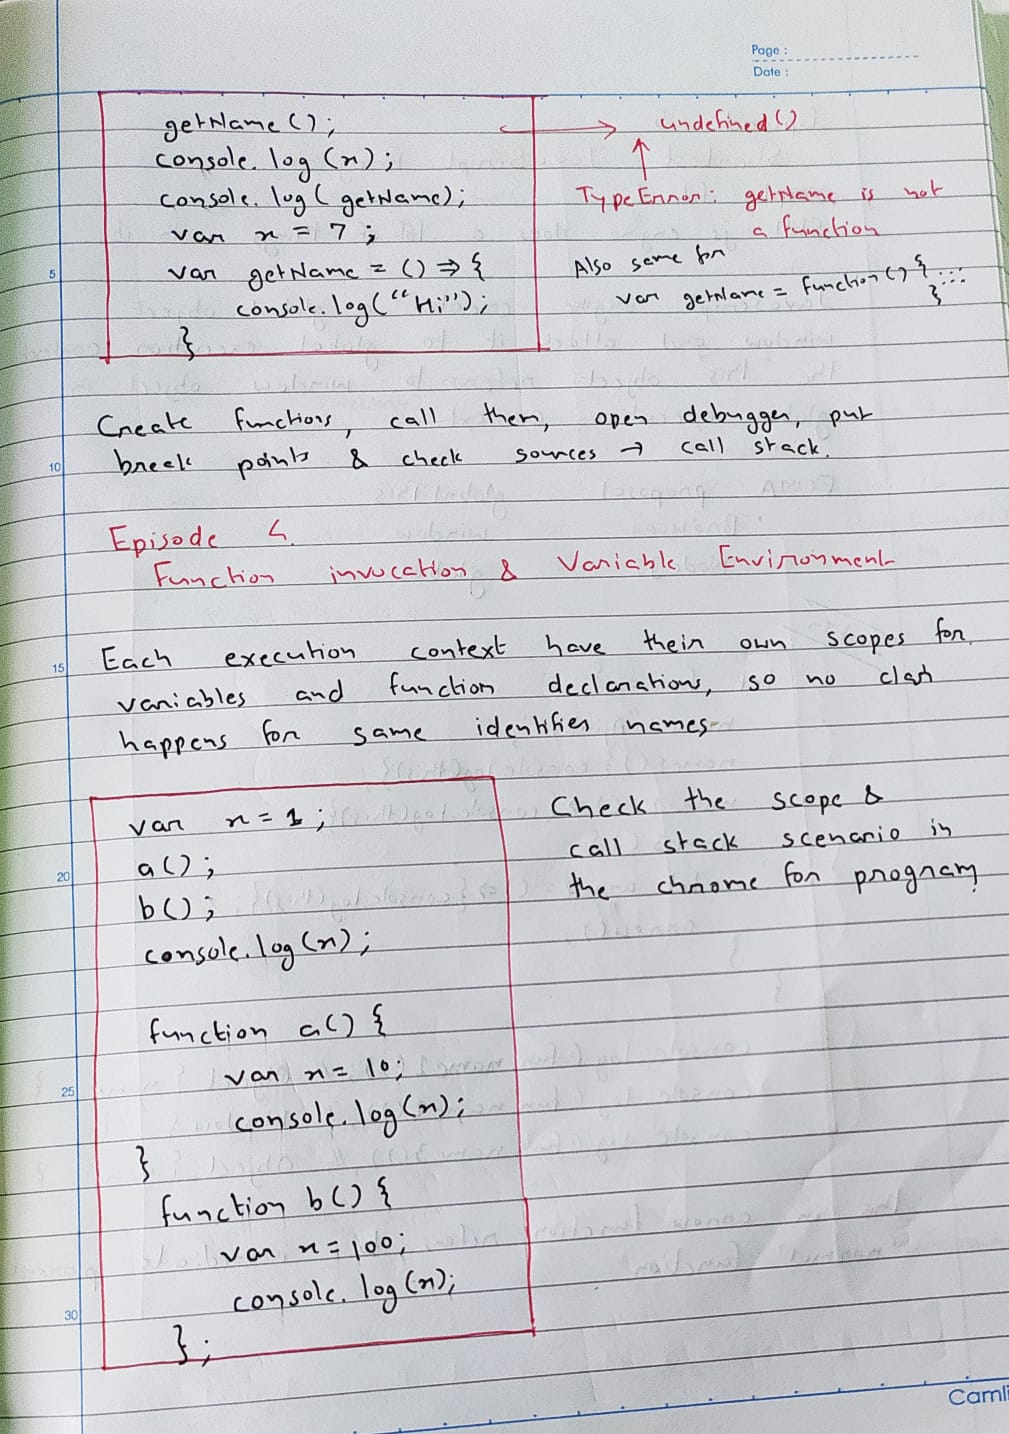 Page :
Date :
getName();
console.log(x);
console.log(getName);
var x = 7;
var getName = () => {
console.log("Hi");
}
undefined()
TypeError: getName is not
a function
Also same for
var getName = function() { ...
}
Create functions, call them, open debugger, put
break points & check sources → call stack.
Episode 4.
Function invocation & Variable Environment
Each execution context have their own scopes for
variables and function declarations, so no clash
happens for same identifies names
var x = 1;
a();
b();
console.log(x);
function a() {
var x = 10;
console.log(x);
}
function b() {
var x = 100;
console.log(x);
};
Check the scope &
call stack scenario in
the chrome for program
5
10
15
20
25
30
Camli